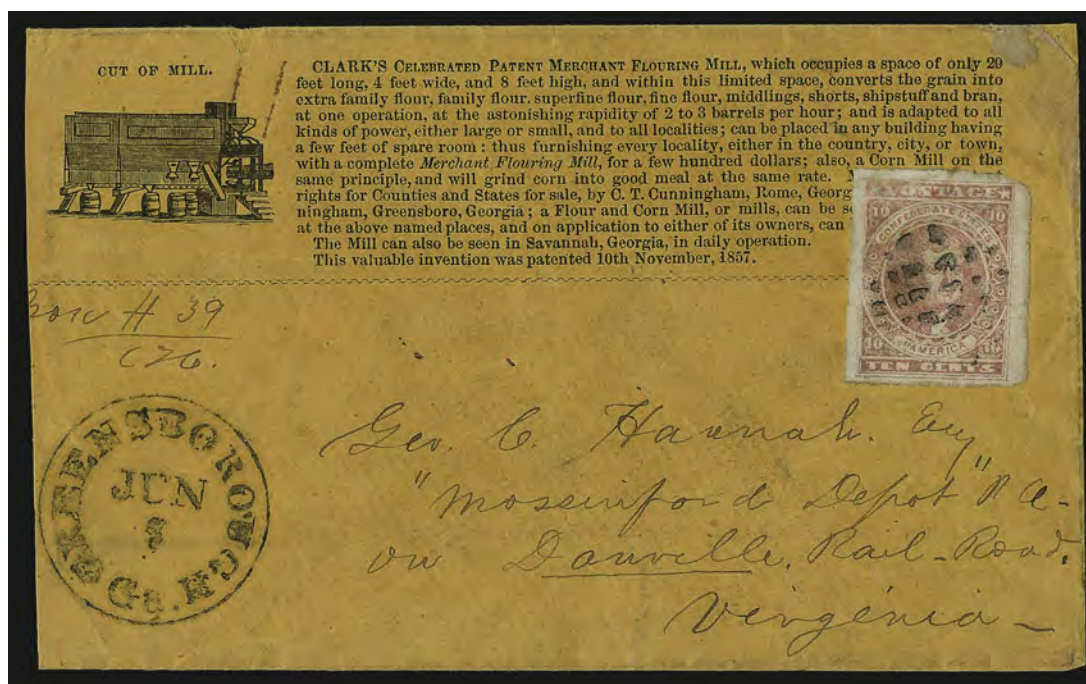 CUT OF MILL.
CLARK'S CELEBRATED PATENT MERCHANT FLOURING MILL, which occupies a space of only 29
feet long, 4 feet wide, and 8 feet high, and within this limited space, converts the grain into
extra family flour, family flour. superfine flour, fine flour, middlings, shorts, shipstuff and bran,
at one operation, at the astonishing rapidity of 2 to 3 barrels per hour; and is adapted to all
kinds of power, either large or small, and to all localities; can be placed in any building having
a few feet of spare room: thus furnishing every locality, either in the country, city, or town,
with a complete Merchant Flouring Mill, for a few hundred dollars; also, a Corn Mill on the
same principle, and will grind corn into good meal at the same rate.
rights for Counties and States for sale, by C. T. Cunningham, Rome, Georg
ningham, Greensboro, Georgia; a Flour and Corn Mill, or mills, can be s
at the above named places, and on application to either of its owners, can
The Mill can also be seen in Savannah, Georgia, in daily operation.
This valuable invention was patented 10th November, 1857.
POSTAGE
10 10
CONFEDERATE STATES
OF AMERICA
10 10
TEN CENTS
# 39
GREENSBOROUGH
JUN
Ga.
Geo. C. Hannah. Esq
"Mossinford Depot" R a-
on Danville, Rail-Road.
Virgenia-